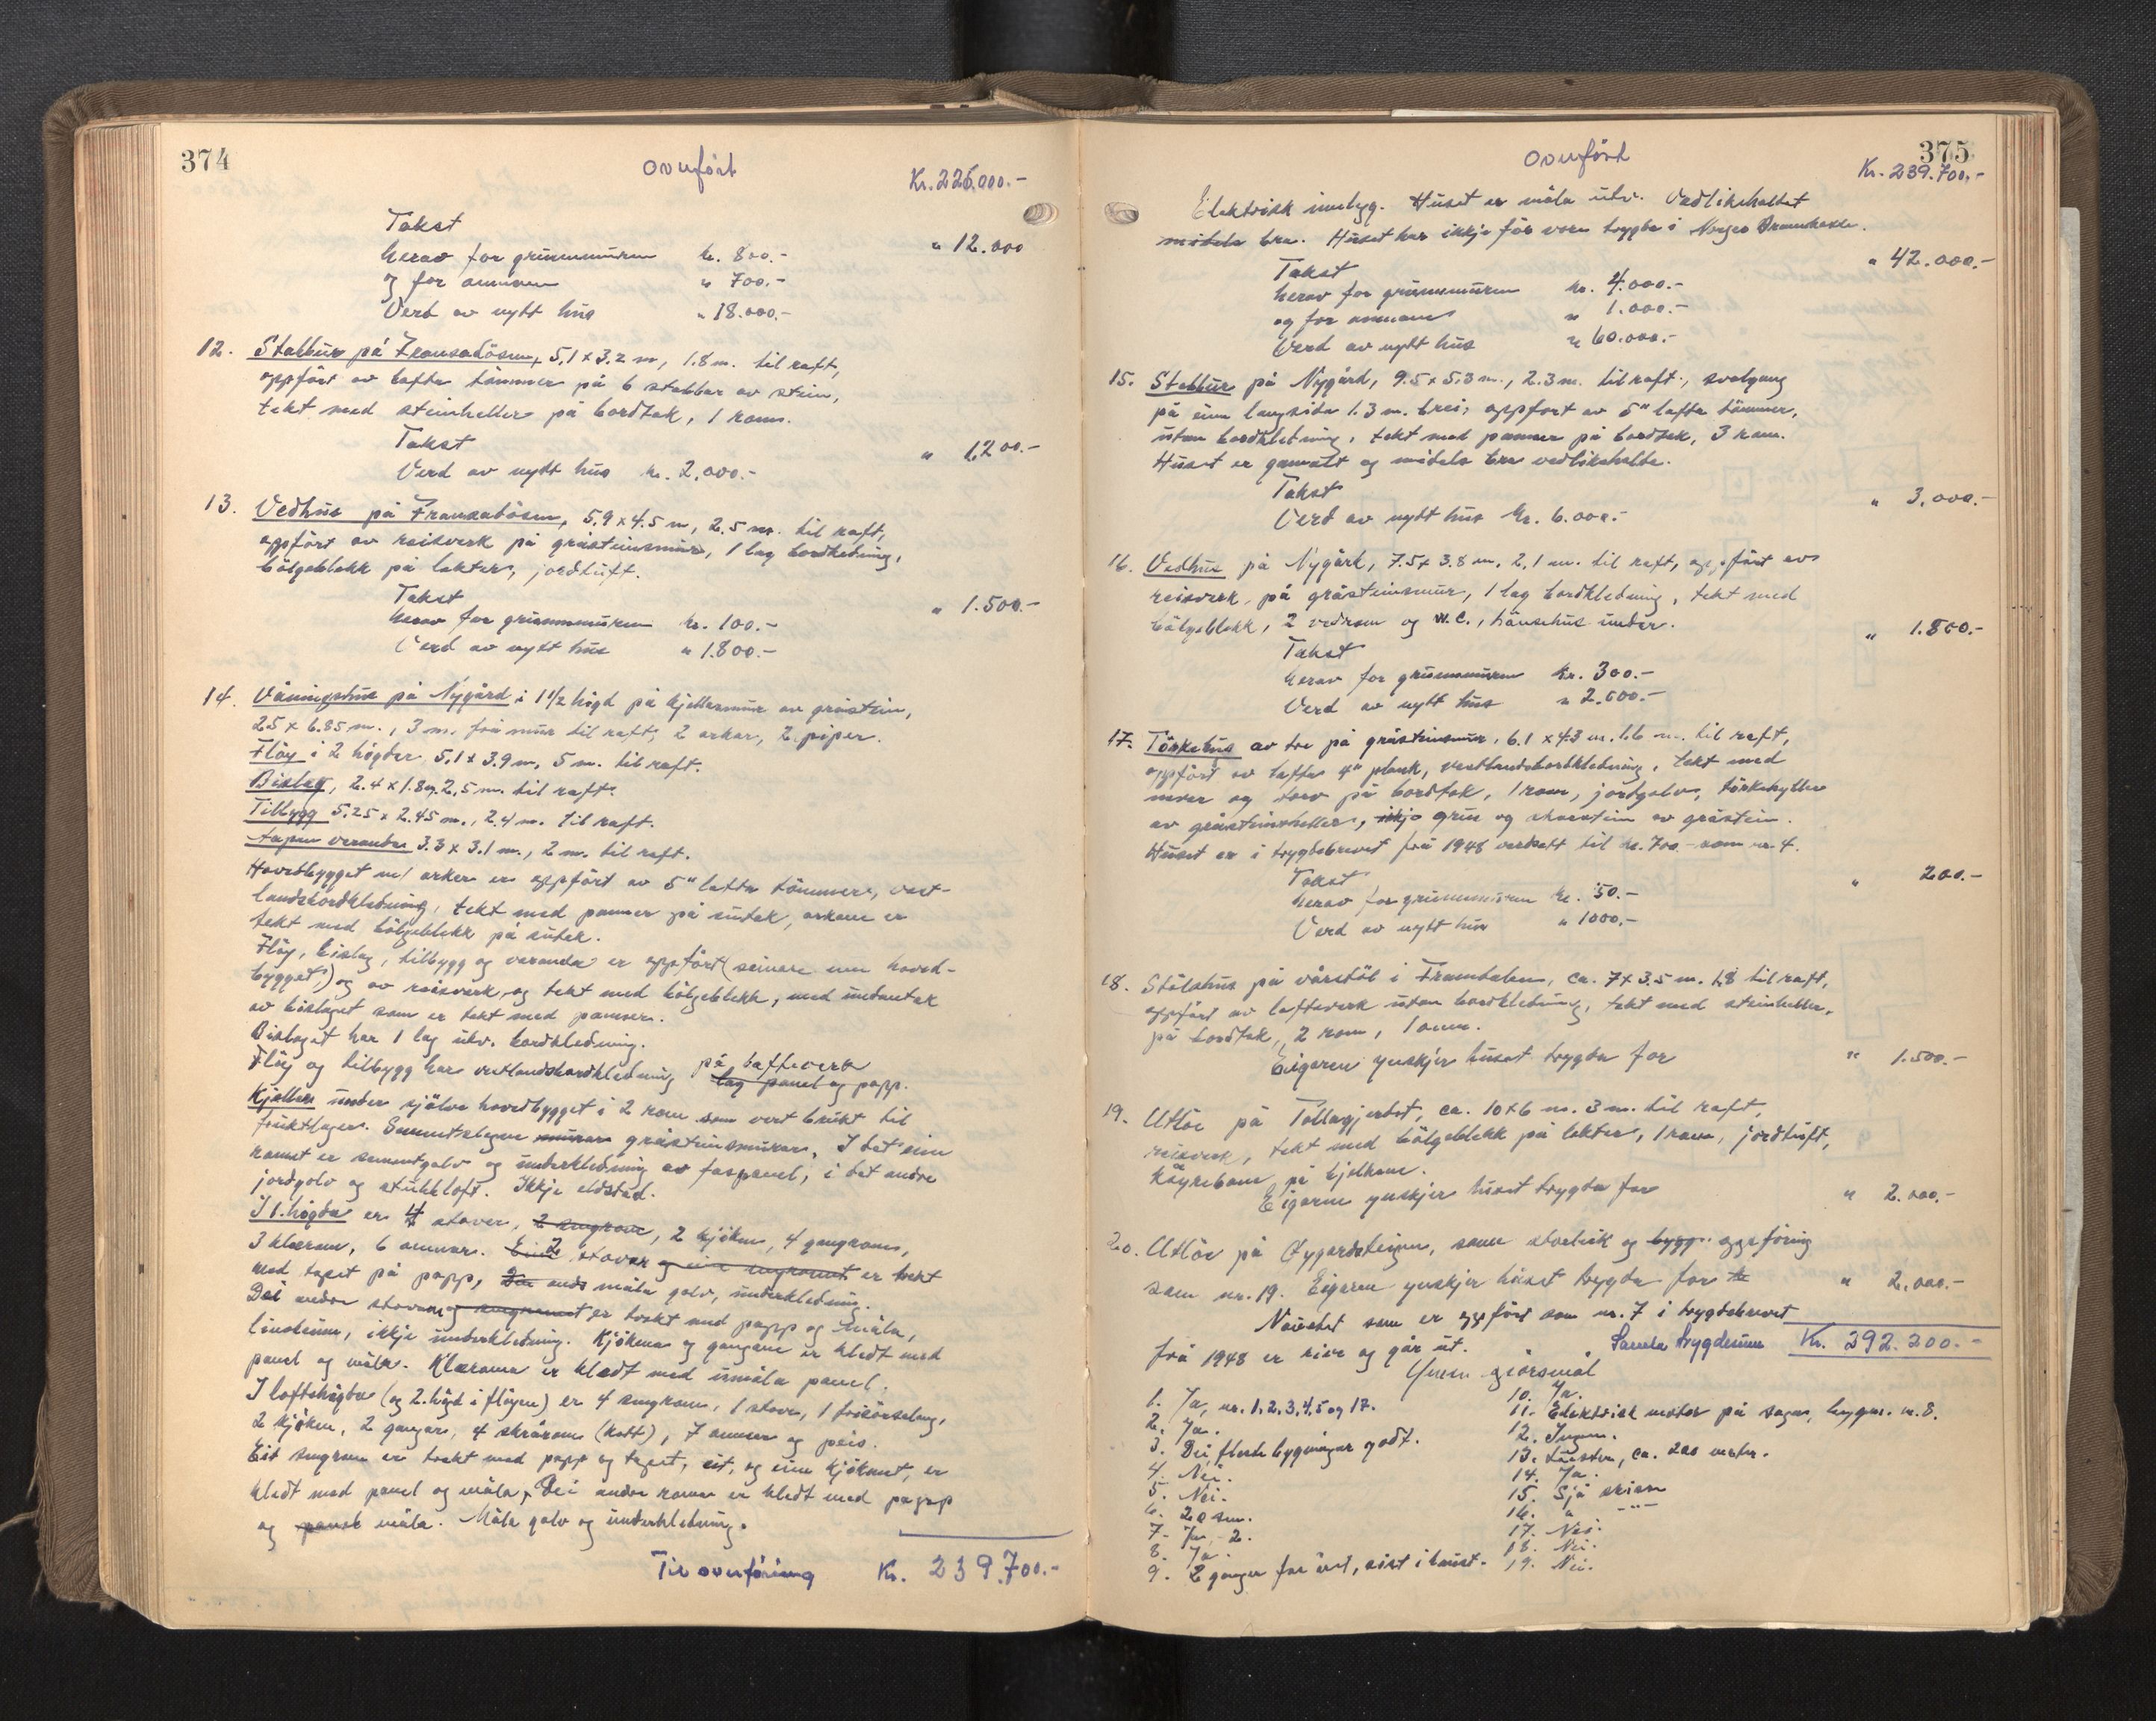 374
Overført
Kr. 225.000.-
Takst " 12.000
herav for grunnmuren kr. 800.-
og for omnen " 700.-
Verd av nytt hus " 18.000.-
12. Stabbur på Fransabøen, 5.1 x 3.2 m, 1.8 m. til raft,
oppført av lafta tømmer på 6 stabbar av stein,
tekt med steinheller på bordtak, 1 rom.
Takst " 1.200.-
Verd av nytt hus kr. 2.000.-
13. Vedhus på Fransabøen, 5.9 x 4.5 m, 2.5 m. til raft,
oppført av reisverk på gråsteinsmur, 1 lag bordkledning,
bølgeblekk på lekter, jordtuft.
Takst " 1.500.-
herav for grunnmuren kr. 100.-
Verd av nytt hus " 1.800.-
14. Våningshus på Nygård i 1 1/2 høgd på kjellarmur av gråstein,
25 x 6.85 m., 3 m. frå mur til raft, 2 arkar, 2 piper.
Fløy i 2 høgder 5.1 x 3.9 m, 5 m. til raft.
Bislag, 2.4 x 1.8 m, 2,5 m. til raft.
Tilbygg 5.25 x 2.45 m., 2.4 m. til raft.
Aapen veranda 3.3 x 3.1 m., 2 m. til raft.
Hovedbygget m/ arker er oppført av 5" lafta tømmer, vest-
landsbordkledning, tekt med panner på sutak, arkane er
tekt med bølgeblekk på sutak.
Fløy, bislag, tilbygg og veranda er oppført (seinare enn hoved-
bygget) og av reisverk, og tekt med bølgeblekk, med undantak
av bislaget som er tekt med panner.
Bislaget har 1 lag utv. bordkledning.
Fløy og tilbygg har vestlandsbordkledning på lafteverk lag panel og papp.
Kjeller under sjølve hovedbygget i 2 rom som vert brukt til
fruktlager. Sementslegne murar gråsteinsmurar. I det eine
romet er sementgolv og underkledning av faspanel, i det andre
jordgolv og stubbloft. Ikkje eldstad.
I 1. høgda er 4 stover, 2 sengrom, 2 kjøken, 4 gangrom,
3 klerom, 6 omnar. Eine 2 stover og ein sengromet er trekt
med tapet på papp, Den ands måla golv, underkledning.
Dei andre stovene og sengromet er trekt med papp og måla,
linoleum, ikkje underkledning. Kjøkena og gangane er kledt med
panel og måla. Kleroma er kledt med umåla panel.
I loftshøgda (og 2. høgd i fløyen) er 4 sengrom, 1 stove, 1 frisørsalong,
2 kjøken, 2 gangar, 4 skråroms (kott), 7 omner og peis.
Eit sengrom er trekt med papp og tapet, eit, og eine kjøkenet, er
kledt med panel og måla. Dei andre roma er kledt med papp
og panel måla. Måla golv og underkledning.
Til overføring Kr. 239.700.-
375
Overført
Kr. 239.700.-
Elektrisk innlegg. Huset er måla utv. Vedlikehaldet
midels bra. Huset har ikkje før vore trygda i Norges Brannkasse.
Takst " 42.000.-
herav for grunnmuren kr. 4.000.-
og for omnane " 1.000.-
Verd av nytt hus " 60.000.-
15. Stabbur på Nygård, 9.5 x 5.3 m., 2.3 m. til raft., svalgang
på ein langside 1.3 m. brei, oppført av 5" lafta tømmer,
utan bordkledning, tekt med panner på bordtak, 3 rom.
Huset er gamalt og midels bra vedlikehalde.
Takst " 3.000.-
Verd av nytt hus kr. 6.000.-
16. Vedhus på Nygård, 7.5 x 3.8 m. 2,1 m. til raft, oppført av
reisverk, på gråsteinsmur, 1 lag bordkledning, tekt med
bølgeblekk, 2 vedrom og W.C., hønsehus under.
Takst " 1.800.-
herav for grunnmuren kr. 300.-
Verd av nytt hus " 2.600.-
17. Tørkehus av tre på gråsteinsmur, 6.1 x 4.3 m. 1.6 m. til raft,
oppført av lafta 4" plank, vestlandsbordkledning, tekt med
never og torv på bordtak, 1 rom, jordgolv, tørkehyller
av gråsteinsheller, ikkje grue og skorstein av gråstein.
Huset er i trygdebrevet frå 1948 verdsett til kr. 700.- som nr. 4.
Takst " 200.-
herav for grunnmuren kr. 50.-
Verd av nytt hus " 1000.-
18. Stølshus på vårstøl i Framdalen, ca. 7 x 3.5 m. 1,8 til raft,
oppført av lafteverk utan bordkledning, tekt med steinheller,
på bordtak, 2 rom, 1 omn.
Eigaren ynskjer huset trygda for " 1.500.-
19. Utløe på Tollagjerdet, ca. 10 x 6 m. 3 m. til raft,
reisverk, tekt med bølgeblekk på lekter, 1 rom, jordtuft,
køyrebane på bjelkane.
Eigaren ynskjer huset trygda for " 2.000.-
20. Utløe på Øygardsteigen, same storleik og bygg oppføring
som nr. 19. Eigaren ynskjer huset trygda for kr " 2.000.-
Naustet som er oppført som nr. 7 i trygdebrevet
frå 1948 er rive og går ut. Samla trygdesum Kr. 292.200.-
Ymse gjørsmål
1. Ja, nr. 1, 2, 3, 4, 5 og 17.
2. Ja.
3. Dei fleste bygningar godt.
4. Nei.
5. Nei.
6. 20 sm.
7. Ja, 2.
8. Ja.
9. 2 ganger for året, sist i haust.
10. Ja.
11. Elektrisk motor på sagen, bygn. nr. 8.
12. Ingen.
13. ca. 200 meter.
14. Ja.
15. Sjå skisse
16. " -"-
17. Nei.
18. Nei.
19. Nei.